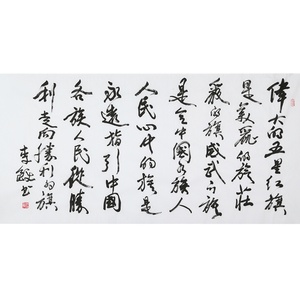 偉大的五星红旗
是氣㲋的旗莊
嚴的旗威武的旗
是全中國各族人
人民心中的旗是
永遠指引中國
各族人民從勝
利走向勝利的旗
李 書